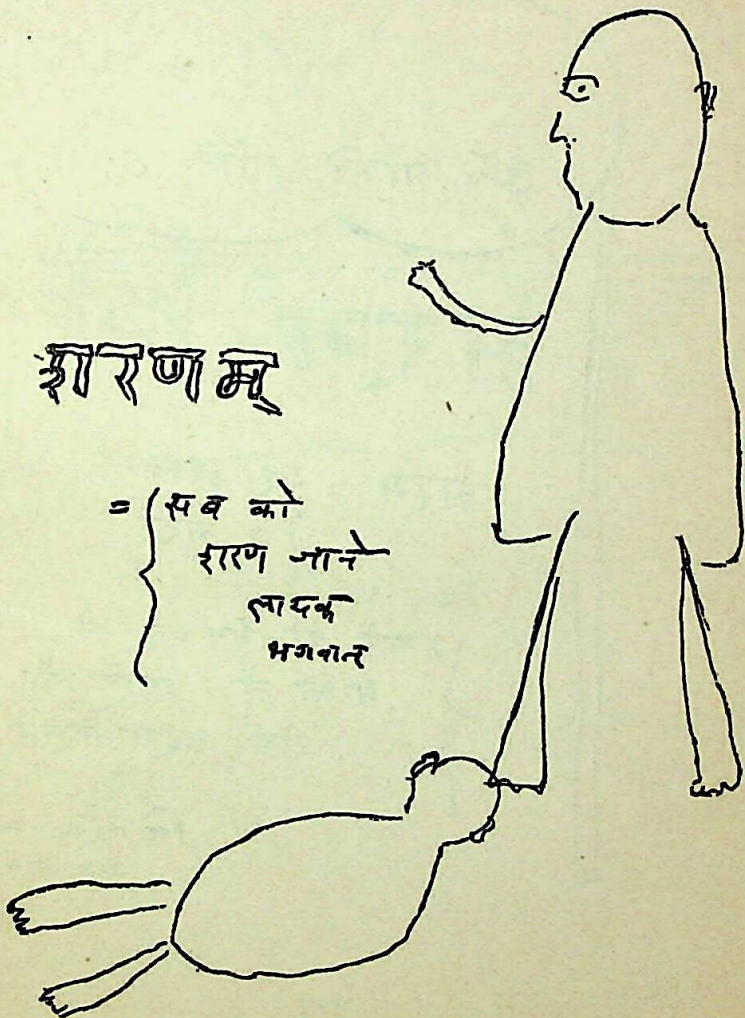 शरणम्
= { सब को
शरण जाने
लायक
भगवान